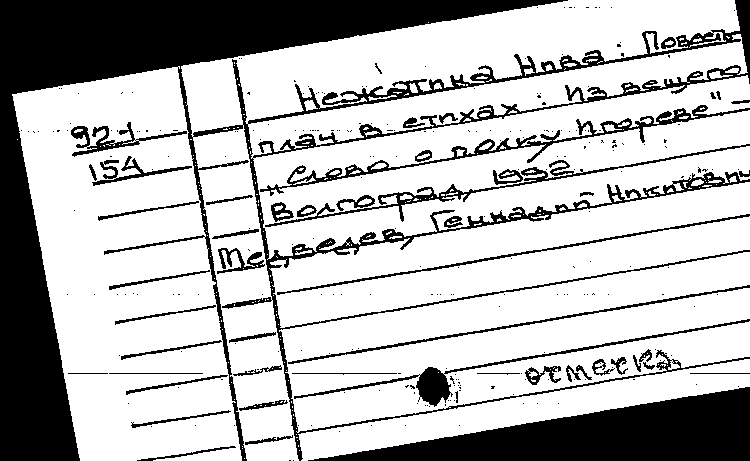 Нежатина Нива : Повесть-
92-1
плач в стихах : Из вещего
154
"Слово о полку Игореве" –
Волгоград, 1992.
Медведев, Геннадий Никитович
отметка